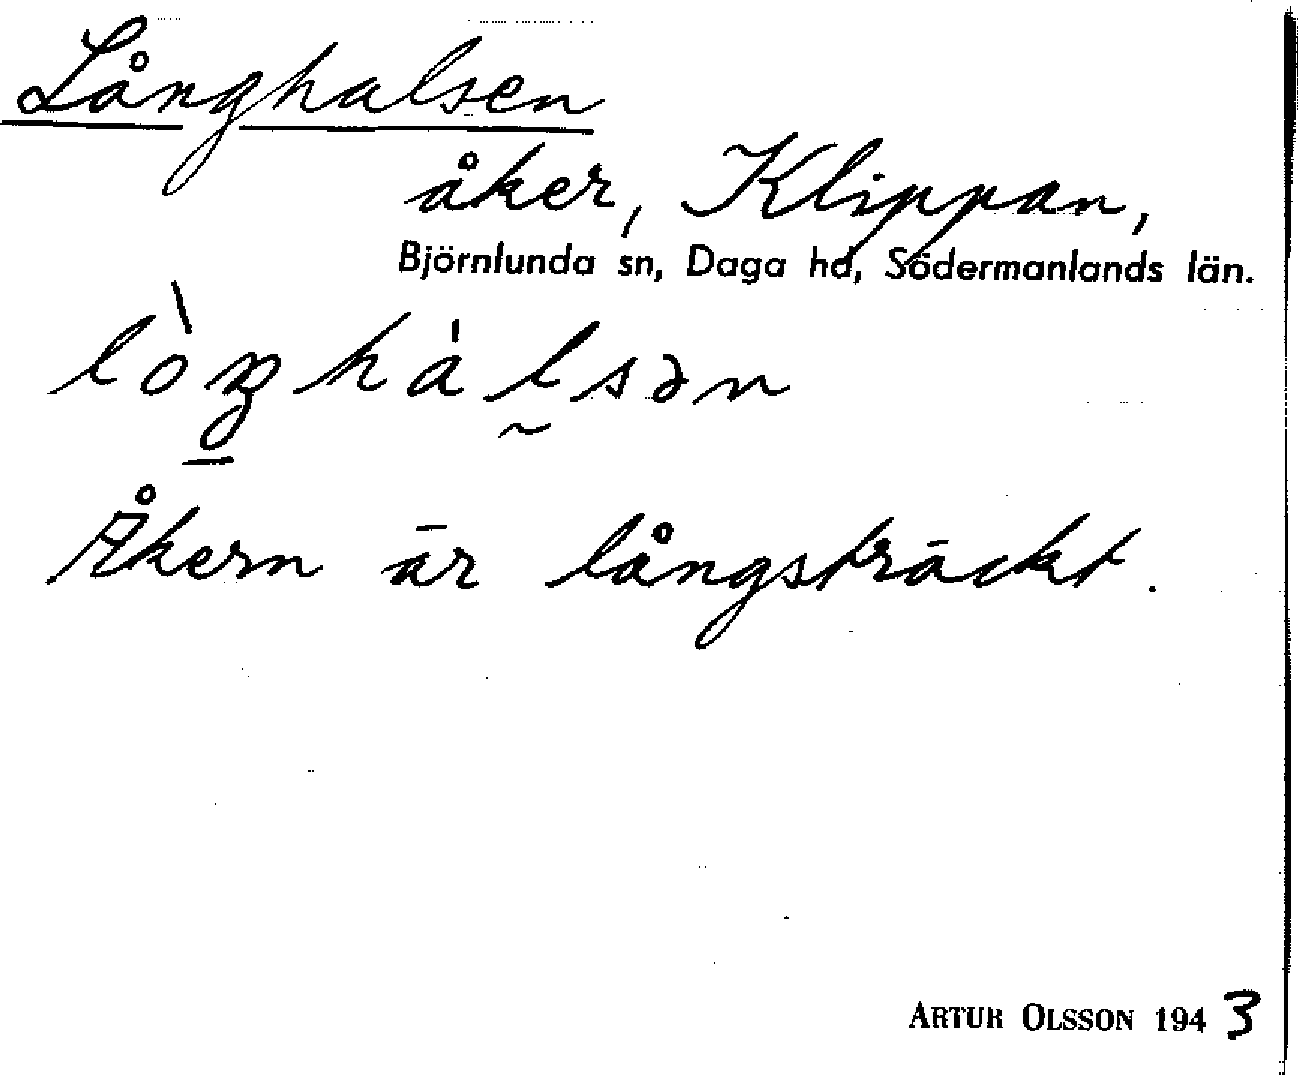 Långhalsen
åker, Klippan,
Björnlunda sn, Daga hd, Södermanlands län.
lòŋhálsən
Åkern är långsträckt.
ARTUR OLSSON 1943